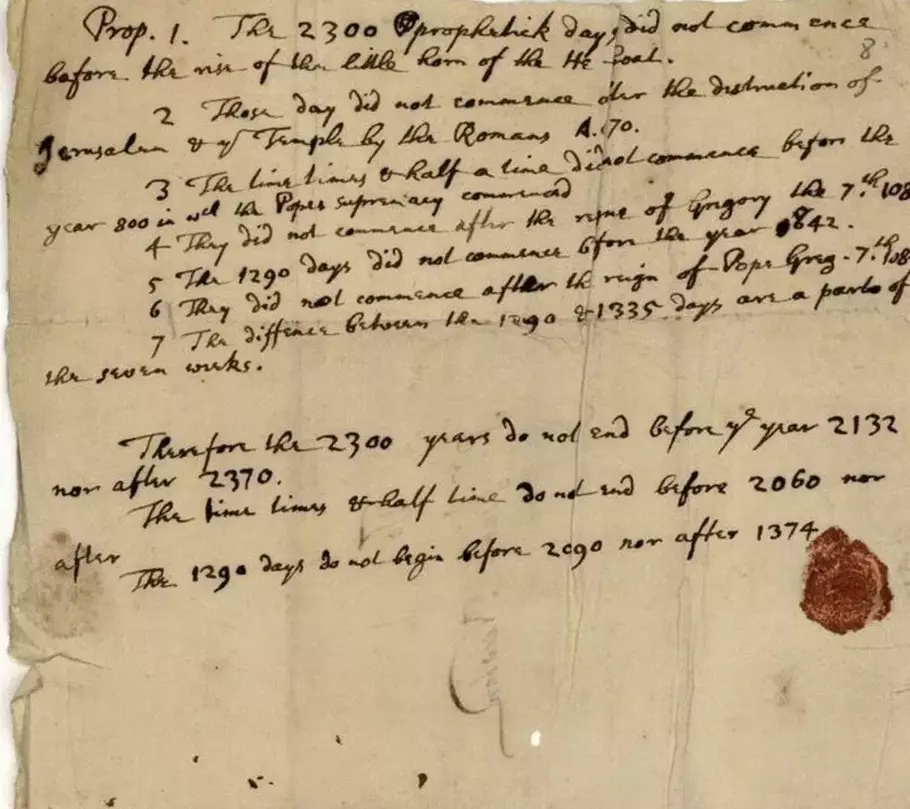 Prop. 1. The 2300 prophetick days did not commence
before the rise of the little horn of the He Goat.
2 Those day did not commence after the destruction of
Jerusalem & ye Temple by the Romans A. 70.
3 The time times & half a time did not commence before the
year 800 in wch the Popes supremacy commenced
4 They did not commence after the reigne of Gregory the 7th. 108
5 The 1290 days did not commence before the year 842.
6 They did not commence after the reign of Pope Greg. 7th. 108
7 The diffence between the 1290 & 1335 days are a parts of
the seven weeks.
Therefore the 2300 years do not end before ye year 2132
nor after 2370.
The time times & half time do not end before 2060 nor
after
The 1290 days do not begin before 2090 nor after 1374
8